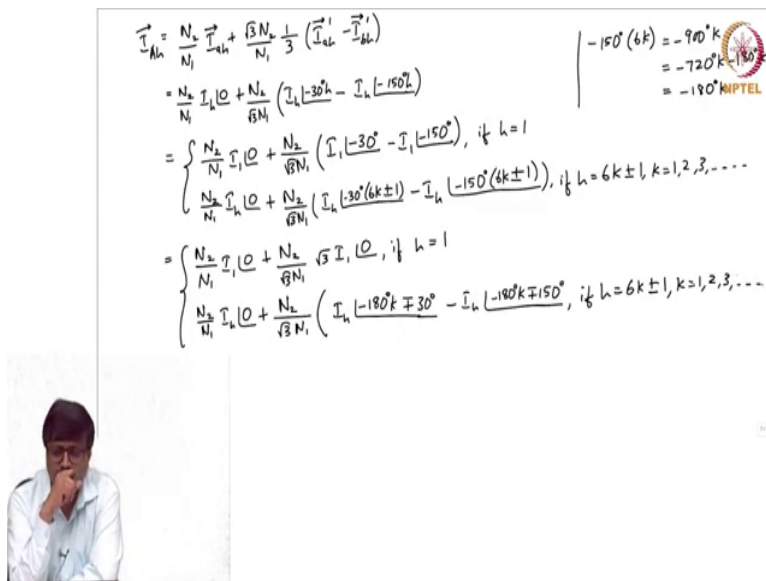 \vec{I}_{Ah} = \frac{N_2}{N_1} \vec{I}_{ah} + \frac{\sqrt{3} N_2}{N_1} \frac{1}{3} (\vec{I}_{ah}' - \vec{I}_{bh}')
= \frac{N_2}{N_1} I_h ∠0 + \frac{N_2}{\sqrt{3} N_1} (I_h ∠-30°h - I_h ∠-150°h)
= { \frac{N_2}{N_1} I_1 ∠0 + \frac{N_2}{\sqrt{3} N_1} (I_1 ∠-30° - I_1 ∠-150°), if h=1
\frac{N_2}{N_1} I_h ∠0 + \frac{N_2}{\sqrt{3} N_1} (I_h ∠-30°(6k±1) - I_h ∠-150°(6k±1)), if h=6k±1, k=1,2,3,....
= { \frac{N_2}{N_1} I_1 ∠0 + \frac{N_2}{\sqrt{3} N_1} \sqrt{3} I_1 ∠0, if h=1
\frac{N_2}{N_1} I_h ∠0 + \frac{N_2}{\sqrt{3} N_1} ( I_h ∠-180°k ∓ 30° - I_h ∠-180°k ∓ 150°, if h=6k±1, k=1,2,3,....
-150°(6k) = -900°k
= -720°k - 180°k
= -180°k
NPTEL